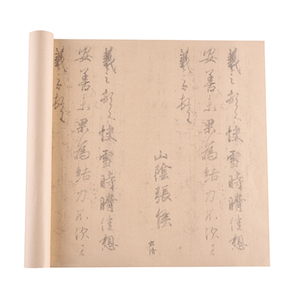 羲之頓首快雪時晴佳想
安善未果為結力不次王
羲之頓首
山陰張侯
羲之頓首快雪時晴佳想
安善未果為結力不次王
羲之頓首